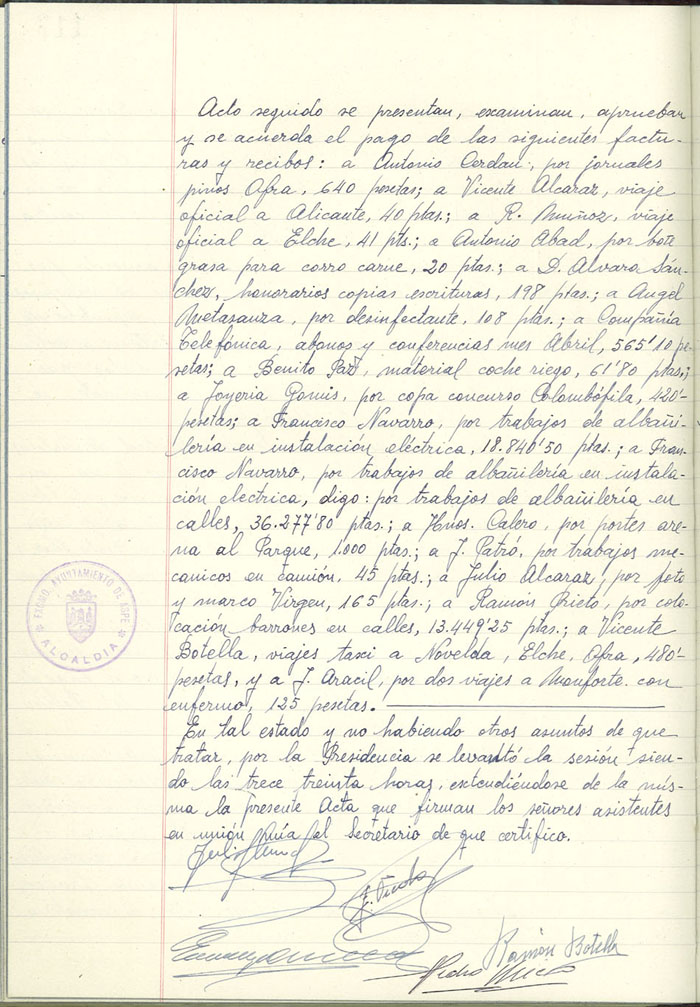 Acto seguido se presentan, examinan, aprueban
y se acuerda el pago de las siguientes factu-
ras y recibos: a Antonio Cerdan, por jornales
pinos Ofra, 640 pesetas; a Vicente Alcaraz, viaje
oficial a Alicante, 40 ptas.; a R. Muñoz, viaje
oficial a Elche, 41 pts.; a Antonio Abad, por bote
grasa para corro carne, 20 ptas.; a D. Alvaro Sán-
chez, honorarios copias escrituras, 198 ptas.; a Angel
Metasanza, por desinfectante, 108 ptas.; a Compañia
Telefónica, abonos y conferencias mes Abril, 565'10 pe-
setas; a Benito Paz, material coche riego, 61'80 ptas.;
a Joyeria Gomis, por copa concurso Colombófila, 420'-
pesetas; a Francisco Navarro, por trabajos de albañi-
lería en instalación eléctrica, 18.840'50 ptas.; a Fran-
cisco Navarro, por trabajos de albañilería en instala-
ción electrica, digo: por trabajos de albañilería en
calles, 36.277'80 ptas.; a Hnos. Calero, por portes are-
na al Parque, 1.000 ptas.; a J. Patró, por trabajos me-
canicos en camión, 45 ptas.; a Julio Alcaraz, por foto
y marco Virgen, 165 ptas.; a Ramón Prieto, por colo-
cación barrones en calles, 13.449'25 ptas.; a Vicente
Botella, viajes taxi a Novelda, Elche, Ofra, 480'-
pesetas, y a J. Aracil, por dos viajes a Monforte con
enfermo, 125 pesetas.
En tal estado y no habiendo otros asuntos de que
tratar, por la Presidencia se levantó la sesión sien-
do las trece treinta horas, extendiéndose de la mis-
ma la presente Acta que firman los señores asistentes
en unión mía el Secretario de que certifico.
EXCMO. AYUNTAMIENTO DE ASPE
ALCALDIA
Ramón Botella
Pedro